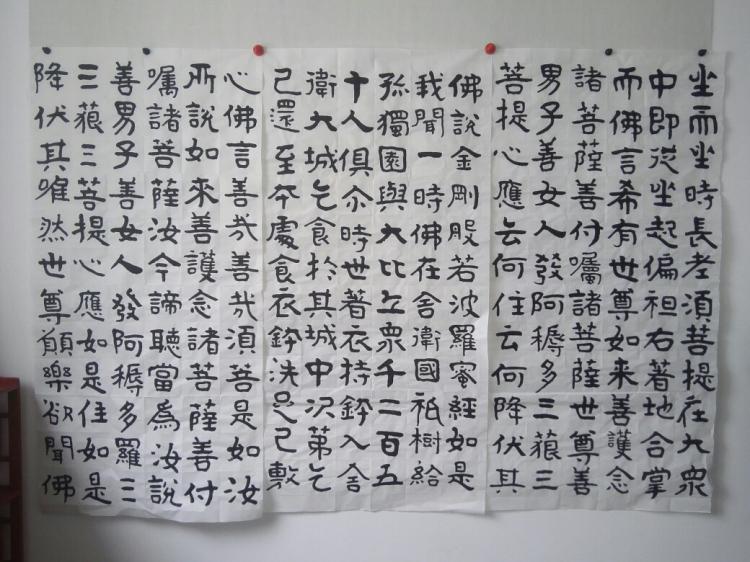 坐而坐時長老須菩提在大衆
中即從坐起偏袒右著地合掌
而佛言希有世尊如来善護念
諸菩薩善付囑諸菩薩世尊善
男子善女人發阿耨多三藐三
菩提心應云何住云何降伏其
佛說金剛般若波羅蜜經如是
我聞一時佛在舍衛國祇樹給
孤獨園與大比丘衆千二百五
十人俱尒時世著衣持鉢入舍
衛大城乞食於其城中次第乞
已還至夲處食衣鉢洗足已敷
心佛言善哉善哉須菩是如汝
所說如來善護念諸菩薩善付
囑諸菩薩汝今諦聽當為汝說
善男子善女人發阿耨多羅三
三藐三菩提心應如是住如是
降伏其唯然世尊願樂欲聞佛